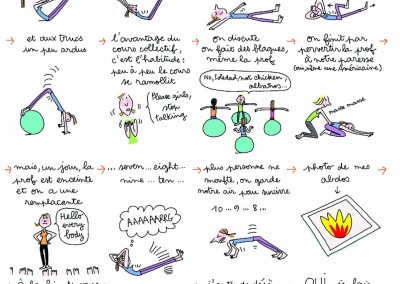 et aux trucs
un peu ardus
l'avantage du
cours collectif,
c'est l'habitude:
peu à peu le cours
se ramollit
Please girls,
stop
talking
on discute
on fait des blagues,
même la prof
No, Soledad, not chicken,
albatros...
on finit par
pervertir la prof
à notre paresse
(oui, même une Américaine)
masse masse
mais, un jour, la
prof est enceinte
et on a une
remplaçante
Hello
every
body
... seven... eight...
nine... ten...
AAAAAARRG
plus personne ne
moufte, on garde
notre air pour survivre
10...9...8...
photo de mes
abdos